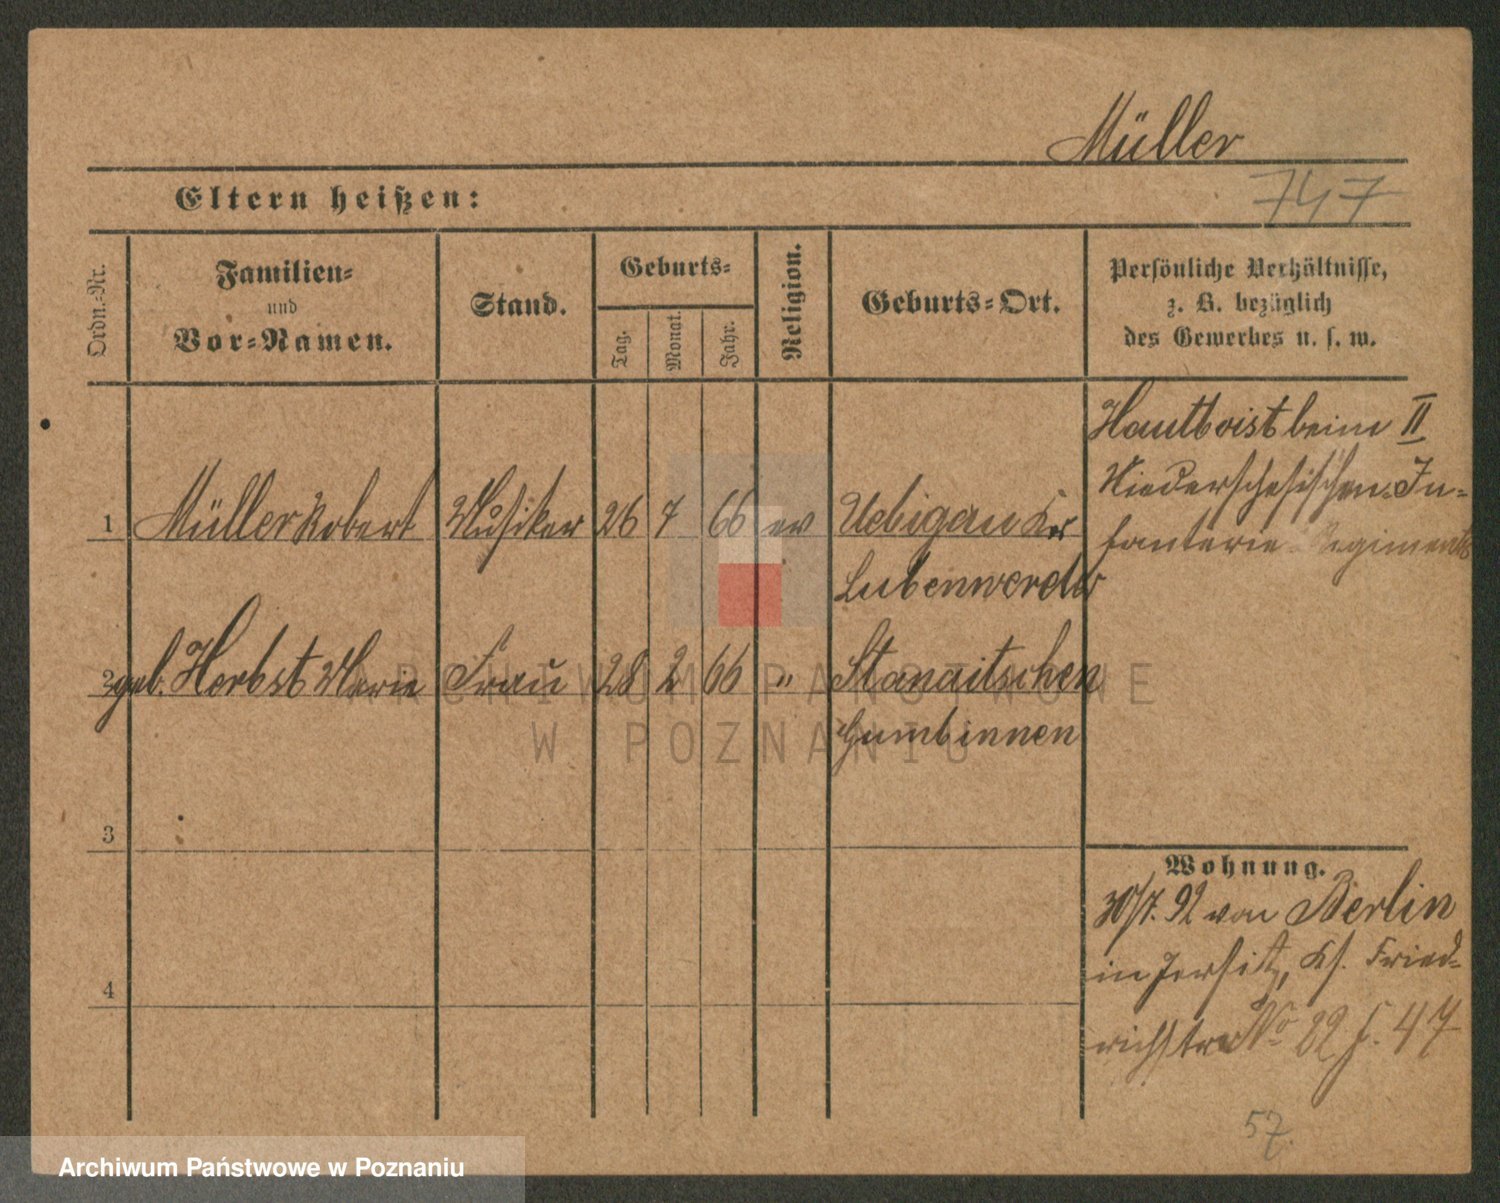 Müller
Eltern heißen:
747
Ordn.-Nr.
Familien-
und
Vor-Namen.
Stand.
Geburts-
Tag.
Monat.
Jahr.
Religion.
Geburts-Ort.
Persönliche Verhältnisse,
z. B. bezüglich
des Gewerbes u. s. w.
Hautboist beim II
Niederschlesischen In-
fanterie-Regiments
1 Müller Robert Musiker 26 7 66 ev Uebigau Kr
Lubenwerder
2 geb. Herbst Marie Frau 28 2 66 " Stanaitschen
Gumbinnen
3
4
Wohnung.
30/7. 92 von Berlin
in Jersitz, Ks. Fried-
richstr No 22 f. 47
57.
ARCHIWUM PAŃSTWOWE
W POZNANIU
Archiwum Państwowe w Poznaniu